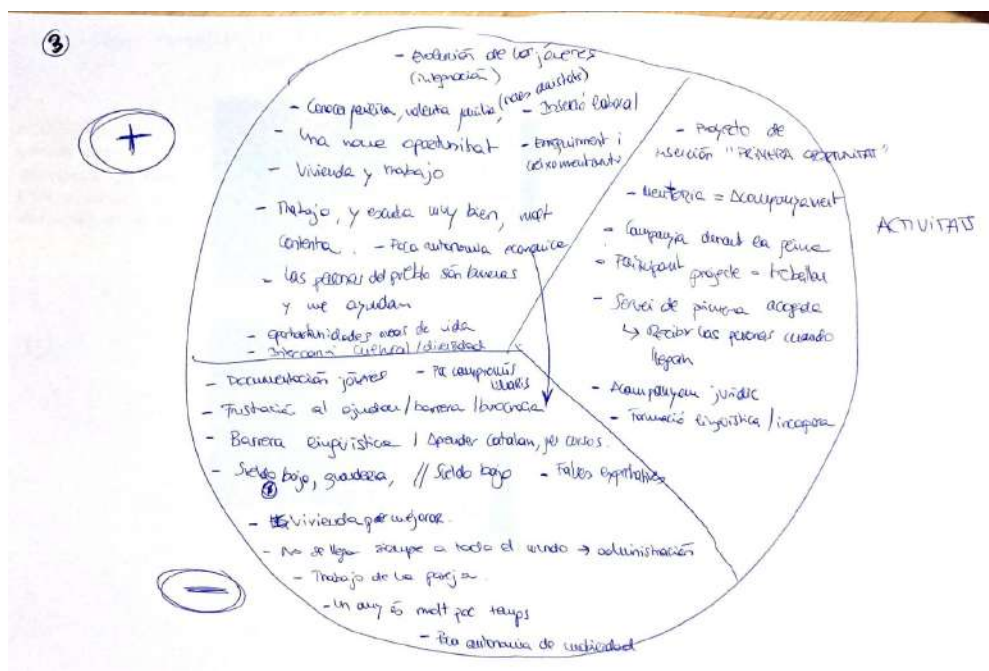 ③
+
- Evolución de los jóvenes
(integración)
- Conocer familia, valenta familia, (noves amistats)
- Inserció laboral
- Una nova oportunitat
- Enriquiment i
creixement
- Vivienda y trabajo
- Trabajo, y escuela muy bien, molt
contenta.
- Poca autonomia económica
- Las personas del pueblo són buenas
y me ayudan
- oportunidades noves de vida
- Intercanvi cultural/diversidad
- Proyecto de
inserción "PRIMERA OPORTUNITAT"
- Mentoria = Acompanyament
- Companyia durant la feina
- Participant projecte - treballar
- Servei de primera acogida
↳ Recibir las personas cuando
llegan
- Acompanyam jurídic
- Formació lingüística / incorpora
ACTIVITATS
- Documentación jóvenes
- Poc compromís
- Frustració al ajudar / barrera / burocracia
- Barrera lingüística / Aprender catalan, cursos.
- Sueldo bajo, guarderia, // Sueldo bajo
- Falses expectatives
- Vivienda por mejorar.
- No se llega siempre a todo el mundo → administración
- Trabajo de la pareja.
- Un any és molt poc temps
- Poca autonomia de movilidad
-